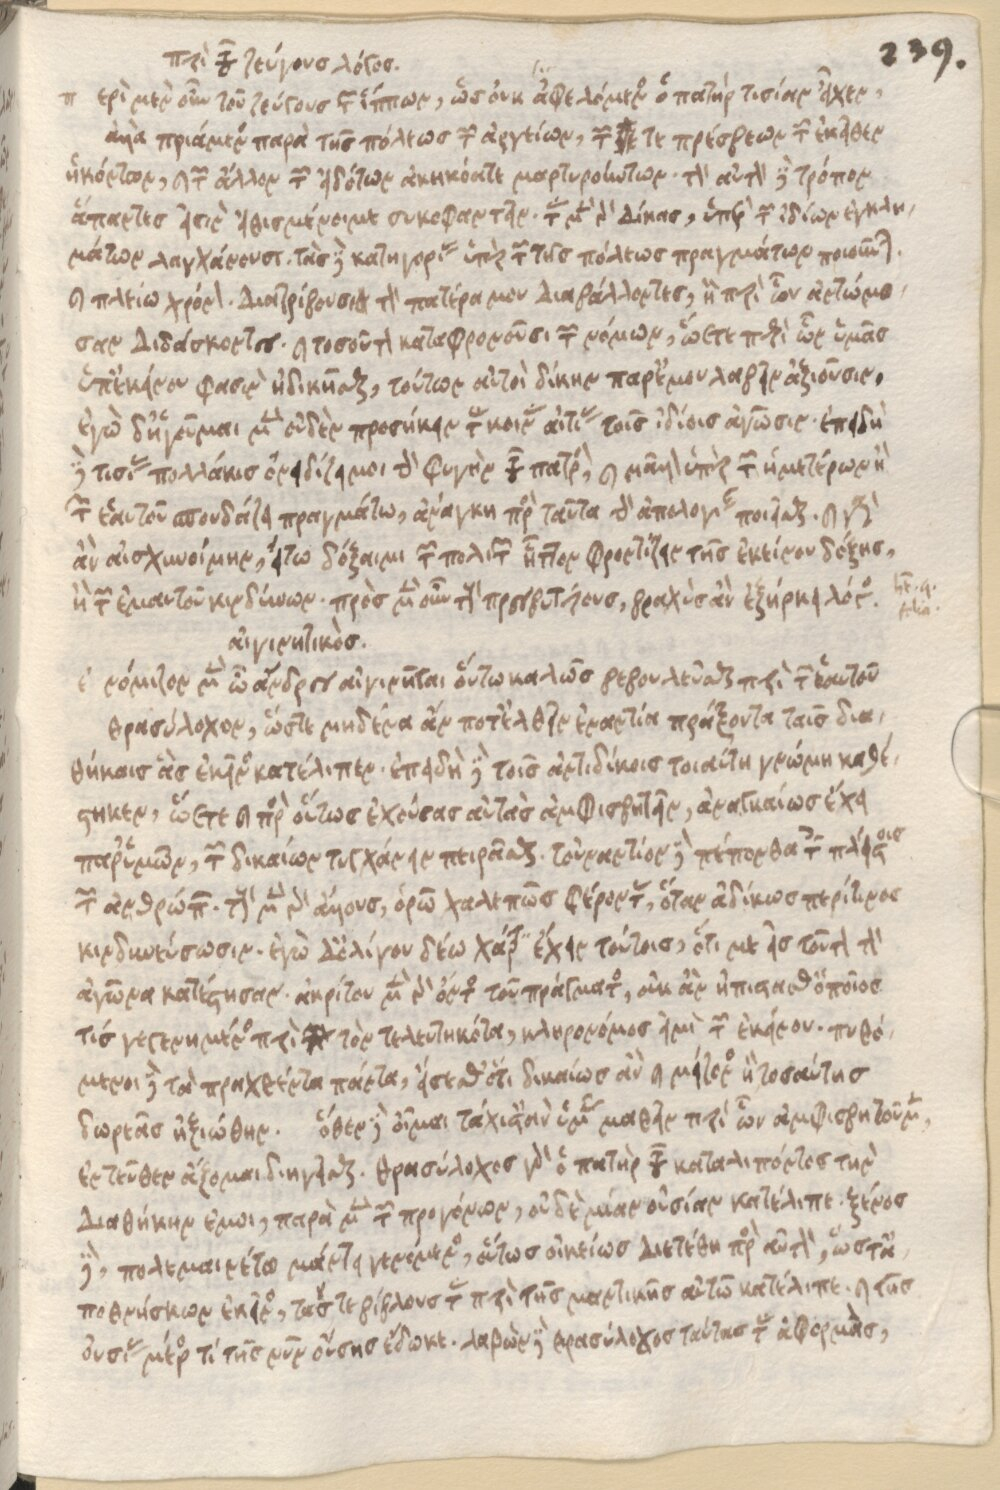 239.
περὶ τοῦ ζεύγους λόγος.
περὶ μὲν οὖν τοῦ ζεύγους τῶν ἵππων, ὡς οὐκ ἀφελόμενος ὁ πατὴρ τισίαν εἶχεν,
ἀλλὰ πριάμενος παρὰ τῆς πόλεως τῶν ἀργείων, τῶν τε πρέσβεων τῶν ἐκεῖθεν
ἡκόντων, καὶ τῶν ἄλλων τῶν εἰδότων ἀκηκόατε μαρτυρούντων. τὸν αὐτὸν δὲ τρόπον
ἅπαντες εἰσὶν εἰθισμένοι με συκοφαντεῖν. τὰς μὲν γὰρ δίκας, ὑπὲρ τῶν ἰδίων ἐγκλη-
μάτων λαγχάνουσι. τὰς δὲ κατηγορίας ὑπὲρ τῶν τῆς πόλεως πραγμάτων ποιοῦνται.
καὶ πλείω χρόνον διατρίβουσι τὸν πατέρα μου διαβάλλοντες, ἢ περὶ ὧν ἀντώμο-
σαν διδάσκοντες. καὶ τοσοῦτον καταφρονοῦσι τῶν νόμων, ὥστε περὶ ὧν ὑμᾶς
ὑπ' ἐκείνου φασὶν ἠδικῆσθαι, τούτων αὐτοὶ δίκην παρ' ἐμοῦ λαβεῖν ἀξιοῦσιν.
ἐγὼ δ' ἡγοῦμαι μὲν οὐδὲν προσήκειν τὰς κοινὰς αἰτίας τοῖς ἰδίοις ἀγῶσιν. ἐπειδὴ
δὲ τισίας πολλάκις ὀνειδίζει μοι τὴν φυγὴν τοῦ πατρὸς, καὶ μᾶλλον ὑπὲρ τῶν ἡμετέρων ἢ
τῶν ἑαυτοῦ σπουδάζει πραγμάτων, ἀνάγκη πρὸς ταῦτα τὴν ἀπολογίαν ποιεῖσθαι. καὶ γὰρ
ἂν αἰσχυνοίμην, εἴ τῳ δόξαιμι τῶν πολιτῶν ἧττον φροντίζειν τῆς ἐκείνου δόξης,
ἢ τῶν ἐμαυτοῦ κινδύνων. πρὸς μὲν οὖν τοὺς πρεσβυτέρους, βραχὺς ἂν ἐξήρκει λόγος.
αἰγινητικὸς.
ἐνόμιζον μὲν ὦ ἄνδρες αἰγινῆται οὕτω καλῶς βεβουλεῦσθαι περὶ τῶν ἑαυτοῦ
θρασύλοχον, ὥστε μηδένα ἄν ποτ' ἐλθεῖν ἐναντία πράξοντα ταῖς δια-
θήκαις ἃς ἐκεῖνος κατέλιπεν. ἐπειδὴ δὲ τοῖς ἀντιδίκοις τοιαύτη γνώμη καθέ-
στηκεν, ὥστε καὶ πρὸς οὕτως ἐχούσας αὐτὰς ἀμφισβητεῖν, ἀναγκαίως ἔχει
παρ' ὑμῶν, τῶν δικαίων τυγχάνειν πειρᾶσθαι. τοὐναντίον δὲ πέπονθα τοῖς πλείστοις
τῶν ἀνθρώπων. τοὺς μὲν γὰρ ἄλλους, ὁρῶ χαλεπῶς φέροντας, ὅταν ἀδίκως περί τινος
κινδυνεύσωσιν. ἐγὼ δ' ὀλίγου δέω χάριν ἔχειν τούτοις, ὅτι με εἰς τοῦτον τὸν
ἀγῶνα κατέστησαν. ἀκρίτου μὲν γὰρ ὄντος τοῦ πράγματος, οὐκ ἂν ἠπίστασθ' ὁποῖός
τις γεγενημένος περὶ τὸν τελευτηκότα, κληρονόμος εἰμὶ τῶν ἐκείνου. πυθό-
μενοι δὲ τὰ πραχθέντα πάντα, εἴσεσθ' ὅτι δικαίως ἂν καὶ μείζονος ἢ τοσαύτης
δωρεᾶς ἠξιώθην. ὅθεν δὲ οἶμαι τάχιστ' ἂν ὑμᾶς μαθεῖν περὶ ὧν ἀμφισβητοῦμεν,
ἐντεῦθεν ἄρξομαι διηγεῖσθαι. θρασύλοχος γὰρ ὁ πατὴρ τοῦ καταλιπόντος τὴν
διαθήκην ἐμοι, παρὰ μὲν τῶν προγόνων, οὐδὲ μίαν οὐσίαν κατέλιπε. ξένος
δὲ, πολεμαινέτω μάντει γενόμενος, οὕτως οἰκείως διετέθη πρὸς αὐτὸν, ὥστ' ἀ-
ποθνήσκων ἐκεῖνος, τάς τε βίβλους τὰς περὶ τῆς μαντικῆς αὐτῶ κατέλιπε. καὶ τῆς
οὐσίας μέρος τι τῆς νῦν οὔσης ἔδωκε. λαβὼν δὲ θρασύλοχος ταύτας τὰς ἀφορμὰς,